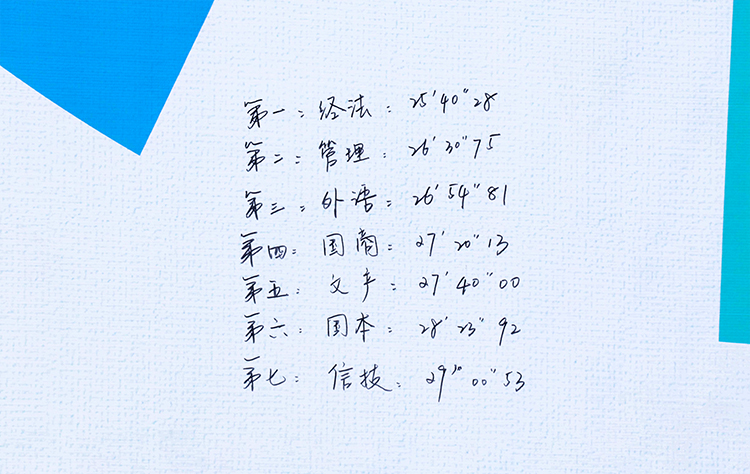 第一：经法：25'40"28
第二：管理：26'30"75
第三：外语：26'54"81
第四：国商：27'20"13
第五：文产：27'40"00
第六：国本：28'23"92
第七：信技：29'00"53